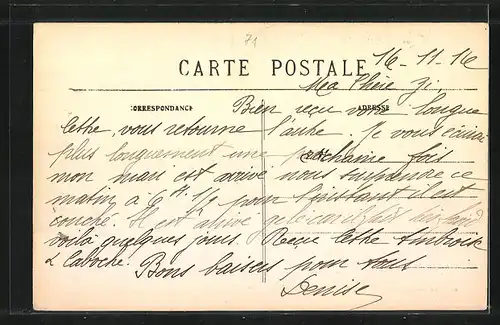 71
16-11-16
CARTE POSTALE
Ma Chère
CORRESPONDANCE
ADRESSE
Bien reçu votre longue
lettre, vous retourne l'autre. Je vous écrirai
plus longuement une prochaine fois
mon mari est arrivé nous surprendre ce
matin à 6 H 1/2 pour l'instant il est
couché. Il est
voilà quelques jours. Reçu lettre Ambroise
& Caroche. Bons baisers pour tous
Denise